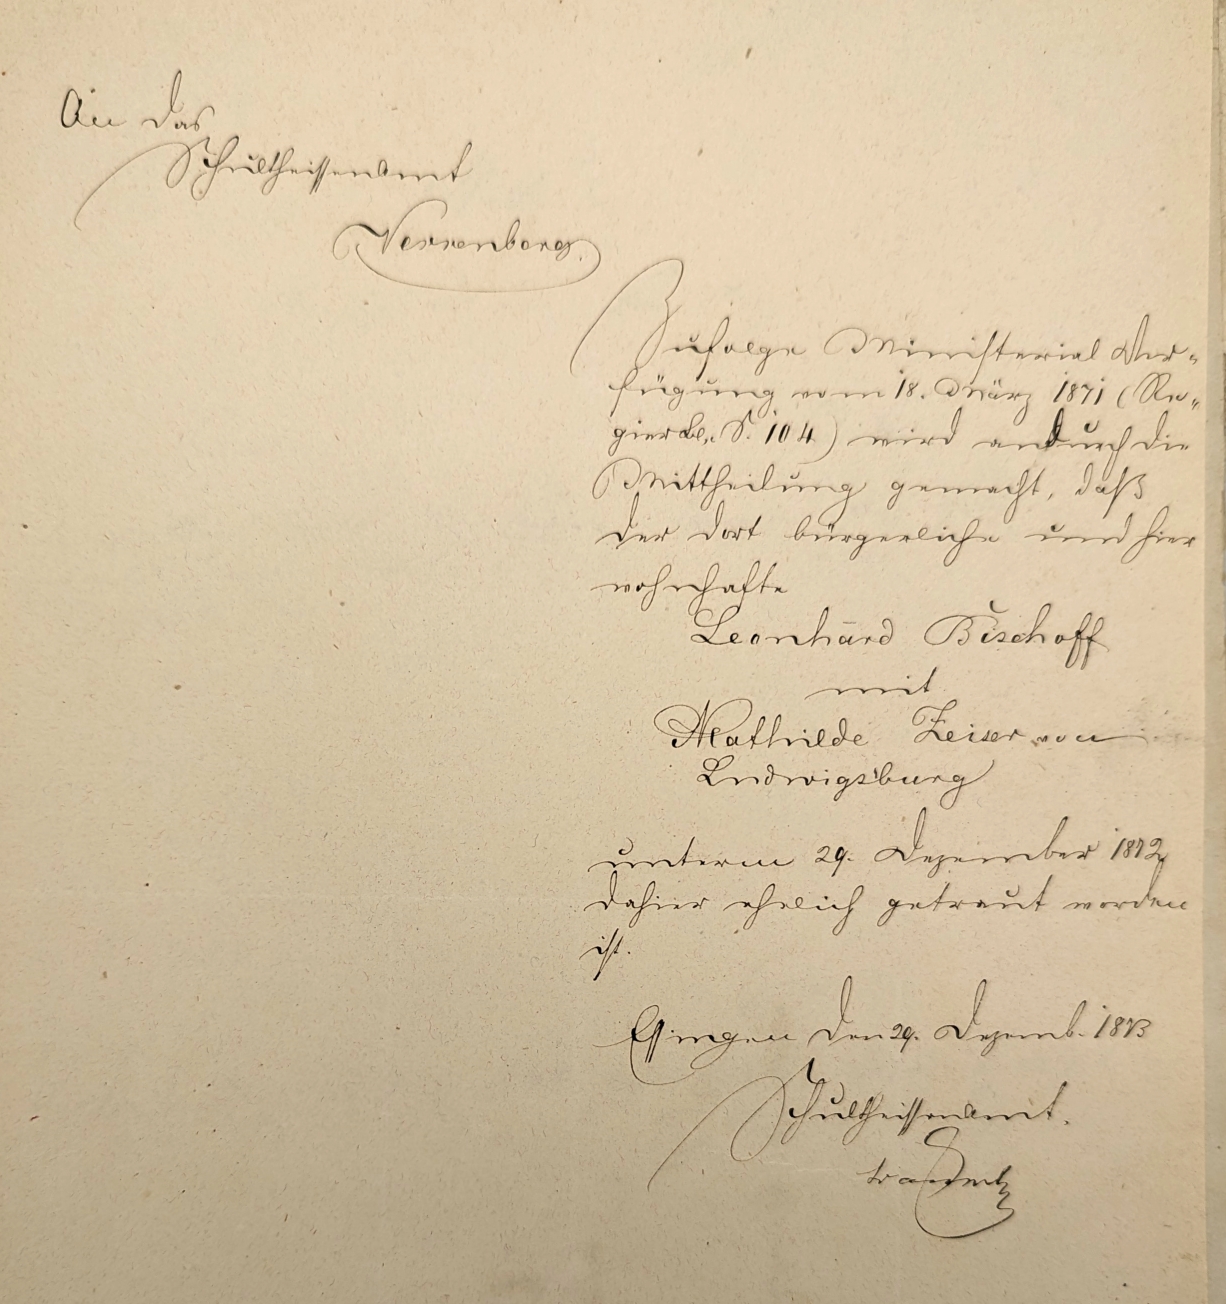 An das
Schultheissenamt
Verrenberg.
Zufolge Ministerial Ver-
fügung vom 18. März 1871 (Re-
gierbl. S. 104) wird andurch die
Mittheilung gemacht, daß
der dort bürgerliche und hier
wohnhafte
Leonhard Bischoff
mit
Mathilde Zeiser von
Ludwigsburg
unterm 29. Dezember 1872
dahier ehelich getraut worden
ist.
Essingen den 29. Dezemb. 1873
Schultheissenamt.